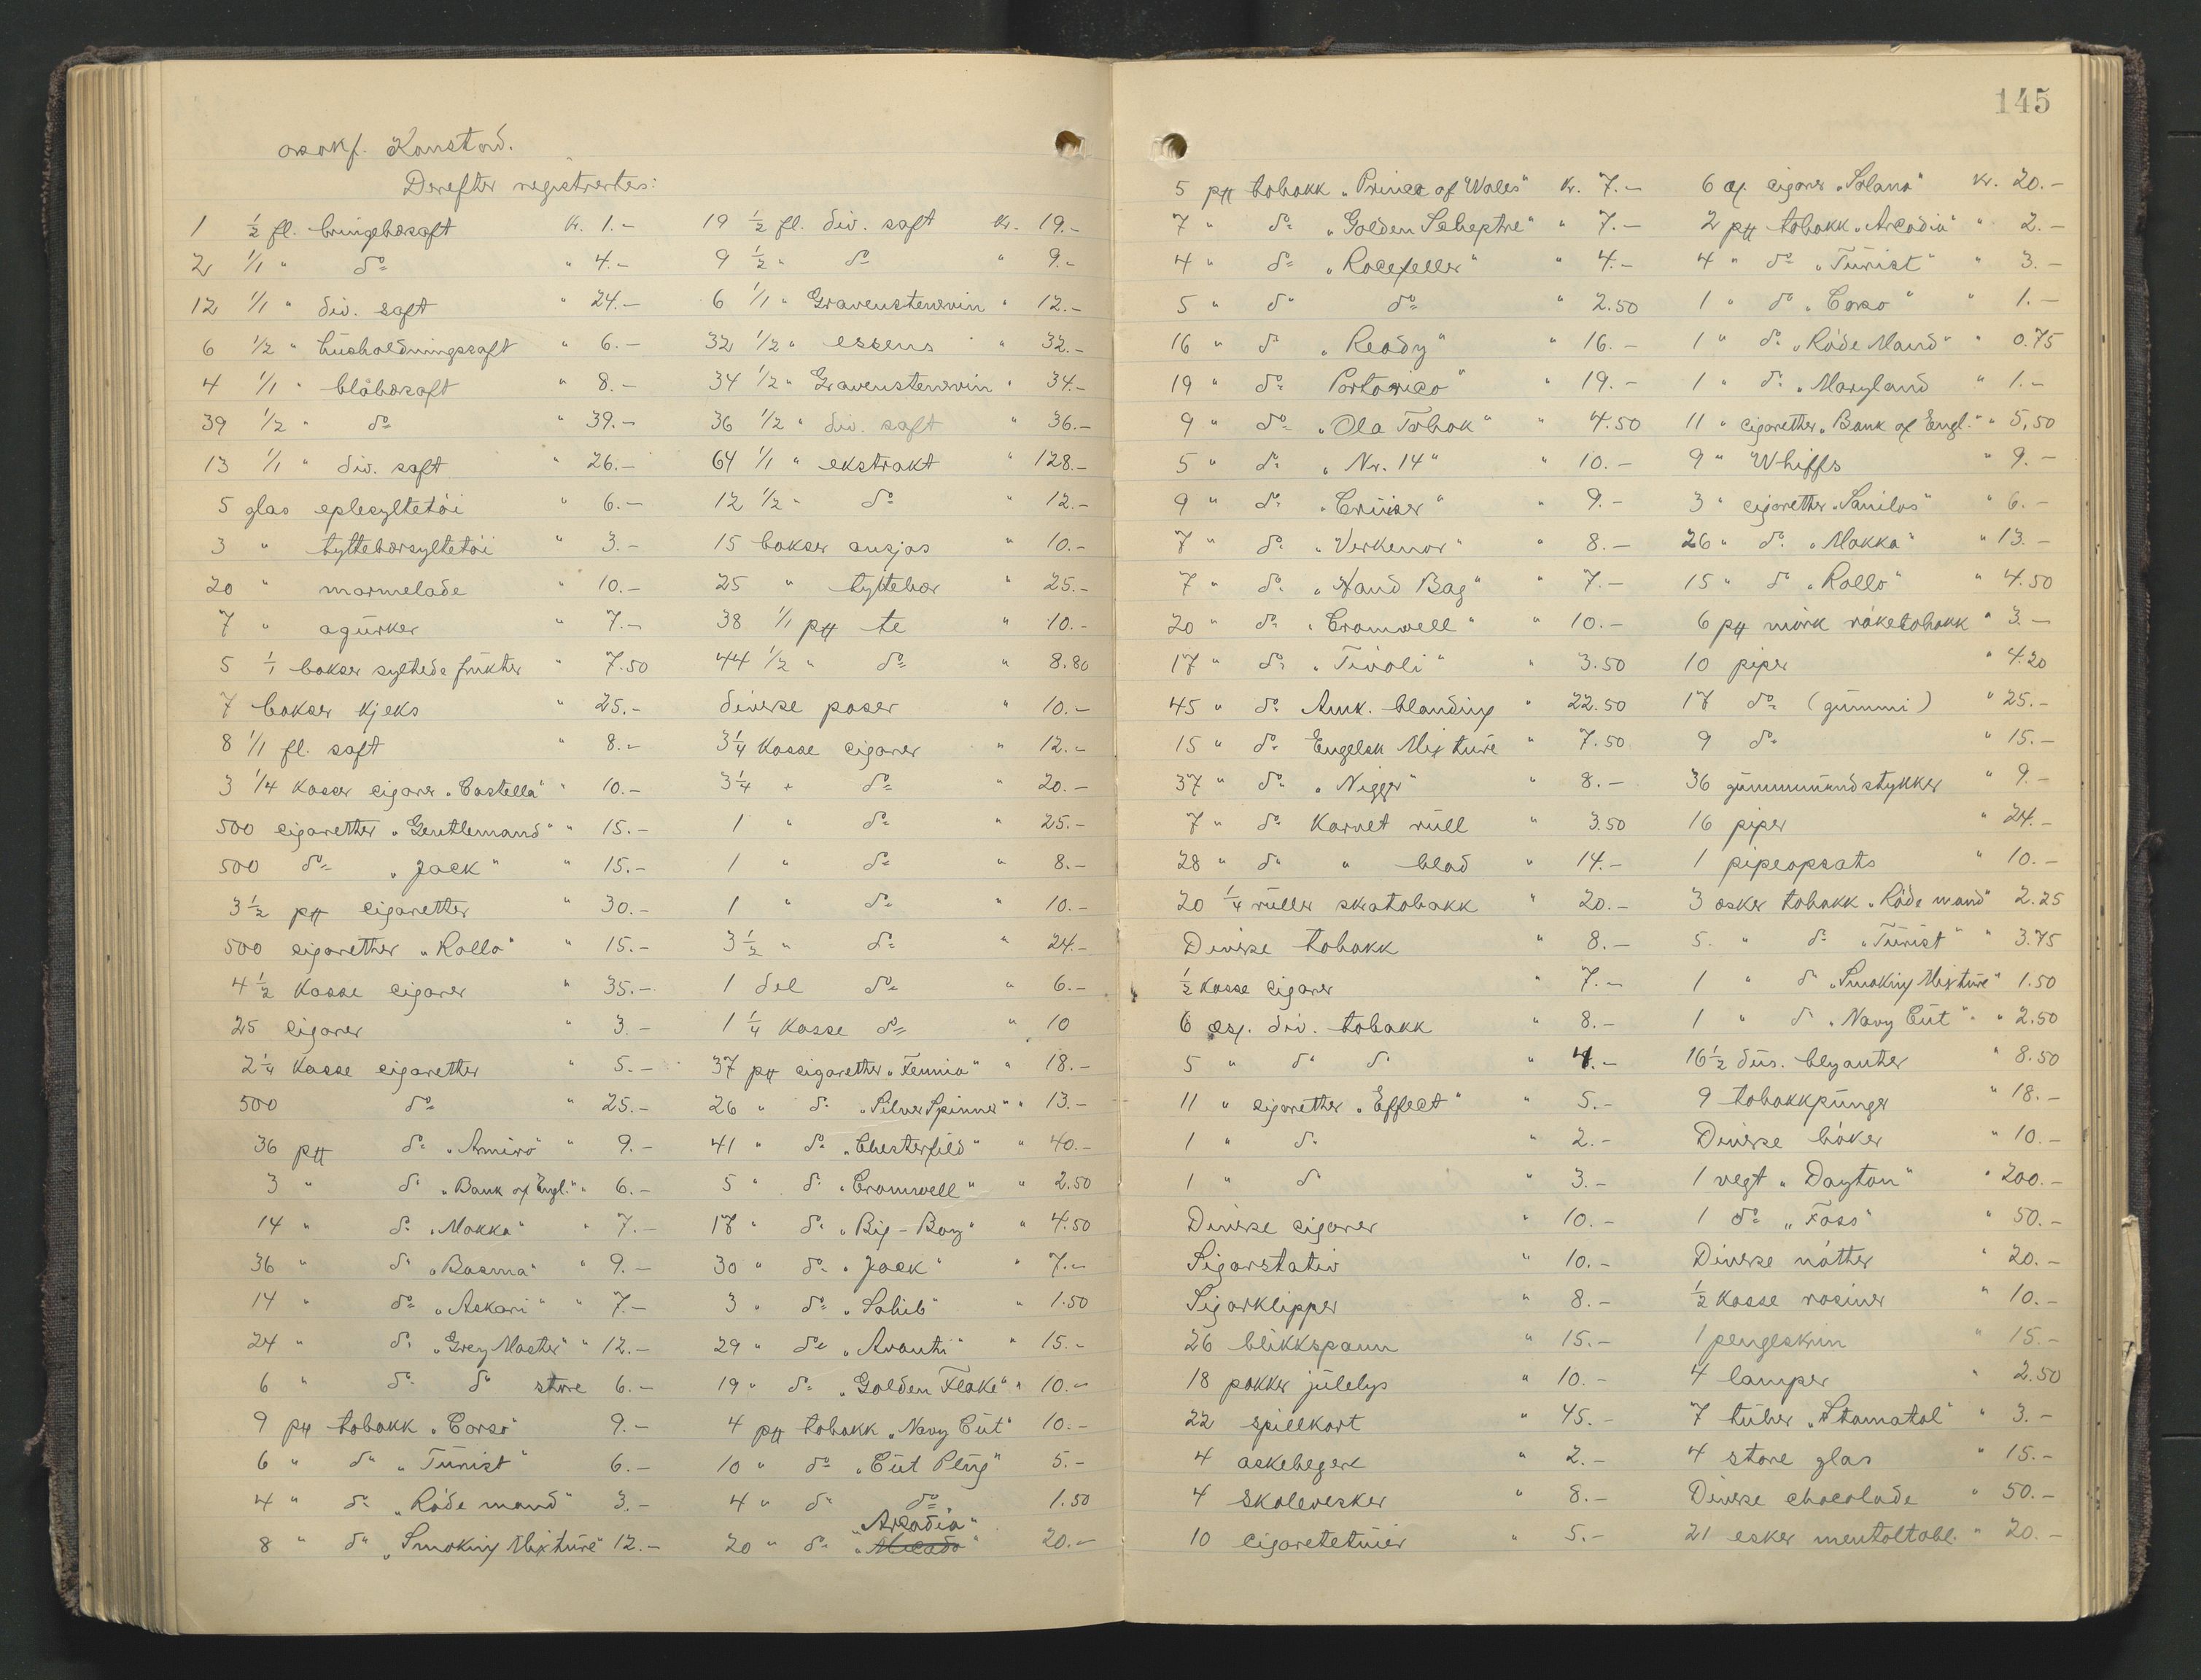 orsakf. Konstad.
Derefter registrertes:
1 1/2 fl. bringebørsaft kr. 1.-
2 1/1 " do " 4.-
12 1/1 " div. saft " 24.-
6 1/2 " husholdningssaft " 6.-
4 1/1 " blåbørsaft " 8.-
39 1/2 " do " 39.-
13 1/1 " div. saft " 26.-
5 glas eplesyltetöi " 6.-
3 " tyttebørsyltetöi " 3.-
20 " marmelade " 10.-
7 " agurker " 7.-
5 1/1 bokser syltede frukter " 7.50
7 bokser kjeks " 25.-
8 1/1 fl. saft " 8.-
3 1/4 kasser cigarer "Castella" " 10.-
500 cigaretter "Gentlemand" " 15.-
500 do "Jack" " 15.-
3 1/2 pk cigaretter " 30.-
500 cigaretter "Rollo" " 15.-
4 1/2 kasse cigarer " 35.-
25 cigarer " 3.-
2 1/4 kasse cigaretter " 5.-
500 do " 25.-
36 pk do "Armiro" " 9.-
3 " do "Bank of Engl." " 6.-
14 " do "Mokka" " 7.-
36 " do "Basma" " 9.-
14 " do "Askari" " 7.-
24 " do "Grey Master" " 12.-
6 " do do store 6.-
9 pk tobakk "Corso" 9.-
6 " do "Turist" 6.-
4 " do "Röde mand" 3.-
8 " do "Smoking Mixture" 12.-
19 1/2 fl. div. saft kr. 19.-
9 1/2 " do " 9.-
6 1/1 " Gravenstenvin " 12.-
32 1/2 " essens " 32.-
34 1/2 " Gravenstenvin " 34.-
36 1/2 " div. saft " 36.-
64 1/1 " ekstrakt " 128.-
12 1/2 " do " 12.-
15 bokser ansjos " 10.-
25 " tyttebør " 25.-
38 1/1 pk te " 10.-
44 1/2 " do " 8.80
diverse poser " 10.-
3 1/4 kasse cigarer " 12.-
3 1/4 " do " 20.-
1 " do " 25.-
1 " do " 8.-
1 " do " 10.-
3 1/2 " do " 24.-
1 del do " 6.-
1 1/4 kasse do " 10
37 pk cigaretter "Fennia" " 18.-
26 " do "Silver Spinner" " 13.-
41 " do "Chesterfild" " 40.-
5 " do "Cromwell" " 2.50
17 " do "Big-Boy" " 4.50
30 " do "Jack" " 7.-
3 " do "Sahib" " 1.50
29 " do "Avanti" " 15.-
19 " do "Golden Flake" " 10.-
4 pk tobakk "Navy Cut" 10.-
10 " do "Cut Plug" 5.-
4 " do do 1.50
20 " do "Arcadia" 20.-
145
5 pk tobakk "Prince of Wales" kr. 7.-
7 " do "Golden Scheptre" " 7.-
4 " do "Rocefeller" " 4.-
5 " do do " 2.50
16 " do "Ready" " 16.-
19 " do Portorico " 19.-
9 " do "Ola Tobak" " 4.50
5 " do "Nr. 14" " 10.-
9 " do "Cruiser" " 9.-
7 " do "Verkenor" " 8.-
7 " do "Hand Bag" " 7.-
20 " do "Cromwell" " 10.-
17 " do "Tivoli" " 3.50
45 " do Amk. blanding " 22.50
15 " do Engelsk Mixture " 7.50
37 " do "Nigger" " 8.-
7 " do Karvet rull " 3.50
28 " do " blad " 14.-
20 1/4 ruller skratobakk " 20.-
Diverse tobakk " 8.-
1/2 kasse cigarer " 7.-
6 esk. div. tobakk " 8.-
5 " do do " 4.-
11 " cigaretter "Effect" " 5.-
1 " do " 2.-
1 " do " 3.-
Diverse cigarer " 10.-
Sigarstativ " 10.-
Sigarklipper " 8.-
26 blikkspann " 15.-
18 pakker julelys " 10.-
22 spillkort " 45.-
4 askebegere " 2.-
4 skolevesker " 8.-
10 cigaretetuier " 5.-
6 cigarer "Solana" kr. 20.-
2 pk tobakk "Arcadia" " 2.-
4 " do "Turist" " 3.-
1 " do "Corso" " 1.-
1 " do "Röde Mand" " 0.75
1 " do "Maryland " 1.-
11 " cigaretter "Bank of Engl." " 5,50
9 " Whiffs " 9.-
3 " cigaretter "Sanilos" " 6.-
26 " do "Mokka" " 13.-
15 " do "Rollo" " 4.50
6 pk mörk röketobakk " 3.-
10 piper " 4.20
17 do (gummi) " 25.-
9 do " 15.-
36 gummimundstykker " 9.-
16 piper " 24.-
1 pipeopsats " 10.-
3 esker tobakk "Röde mand" 2.25
5. " do "Turist" " 3.75
1 " do "Smoking Mixture" 1.50
1 " do "Navy Cut" " 2.50
16 1/2 dus. blyanter " 8.50
9 tobakkpunger " 18.-
Diverse böker " 10.-
1 vegt "Dayton" " 200.-
1 do "Foss" " 50.-
Diverse nötter " 20.-
1/2 kasse rosiner " 10.-
1 pengeskrin " 15.-
4 lamper " 2.50
7 tuber "Stomatol" " 3.-
4 store glas " 15.-
Diverse chocolade " 50.-
21 esker mentoltabl. " 20.-